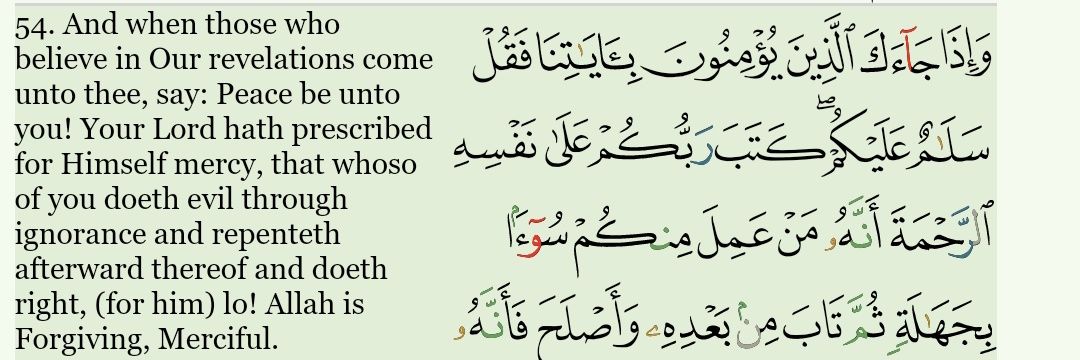 54. And when those who
believe in Our revelations come
unto thee, say: Peace be unto
you! Your Lord hath prescribed
for Himself mercy, that whoso
of you doeth evil through
ignorance and repenteth
afterward thereof and doeth
right, (for him) lo! Allah is
Forgiving, Merciful.
وَإِذَا جَآءَكَ ٱلَّذِينَ يُؤْمِنُونَ بِـَٔايَـٰتِنَا فَقُلْ
سَلَـٰمٌ عَلَيْكُمْ ۖ كَتَبَ رَبُّكُمْ عَلَىٰ نَفْسِهِ
ٱلرَّحْمَةَ أَنَّهُۥ مَنْ عَمِلَ مِنكُمْ سُوٓءًۢا
بِجَهَـٰلَةٍ ثُمَّ تَابَ مِنۢ بَعْدِهِۦ وَأَصْلَحَ فَأَنَّهُۥ